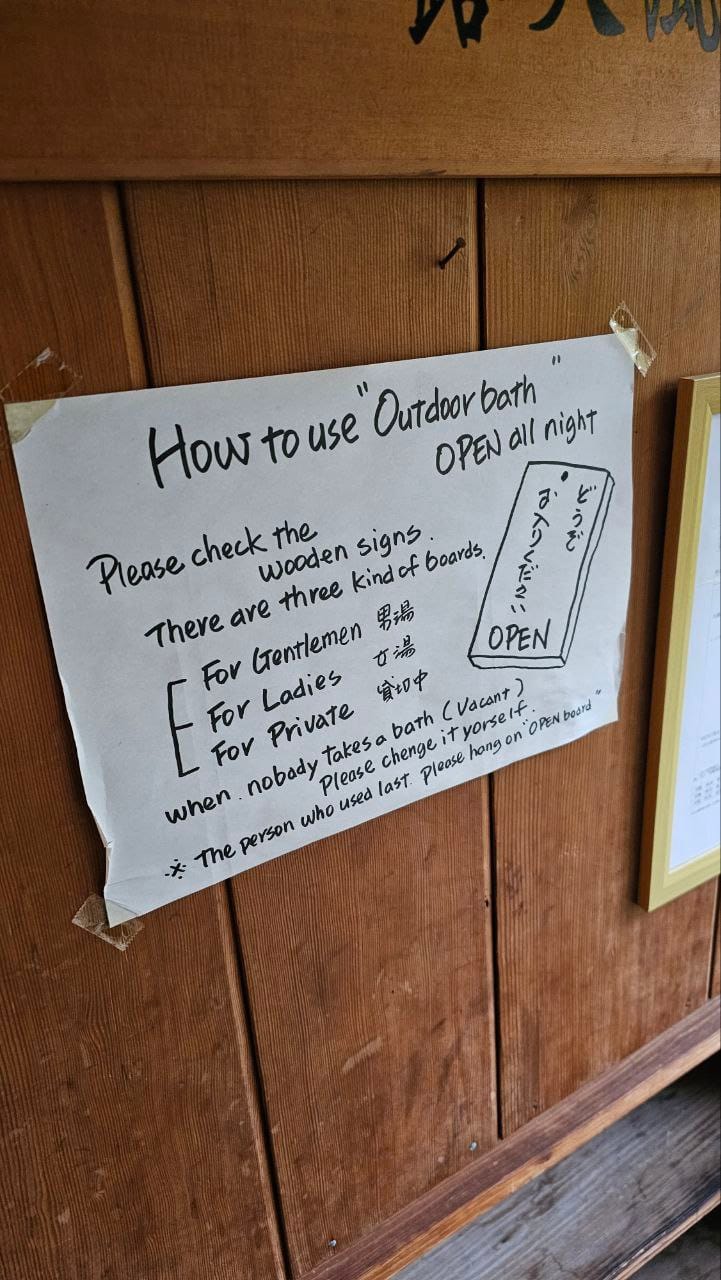 How to use "Outdoor bath"
OPEN all night
Please check the
wooden signs.
There are three kind of boards.
For Gentlemen 男湯
For Ladies 女湯
For Private 貸切中
どうぞ
お入りください
OPEN
when. nobody takes a bath (Vacant)
Please chenge it yorself.
※ The person who used last. Please hang on "OPEN board"